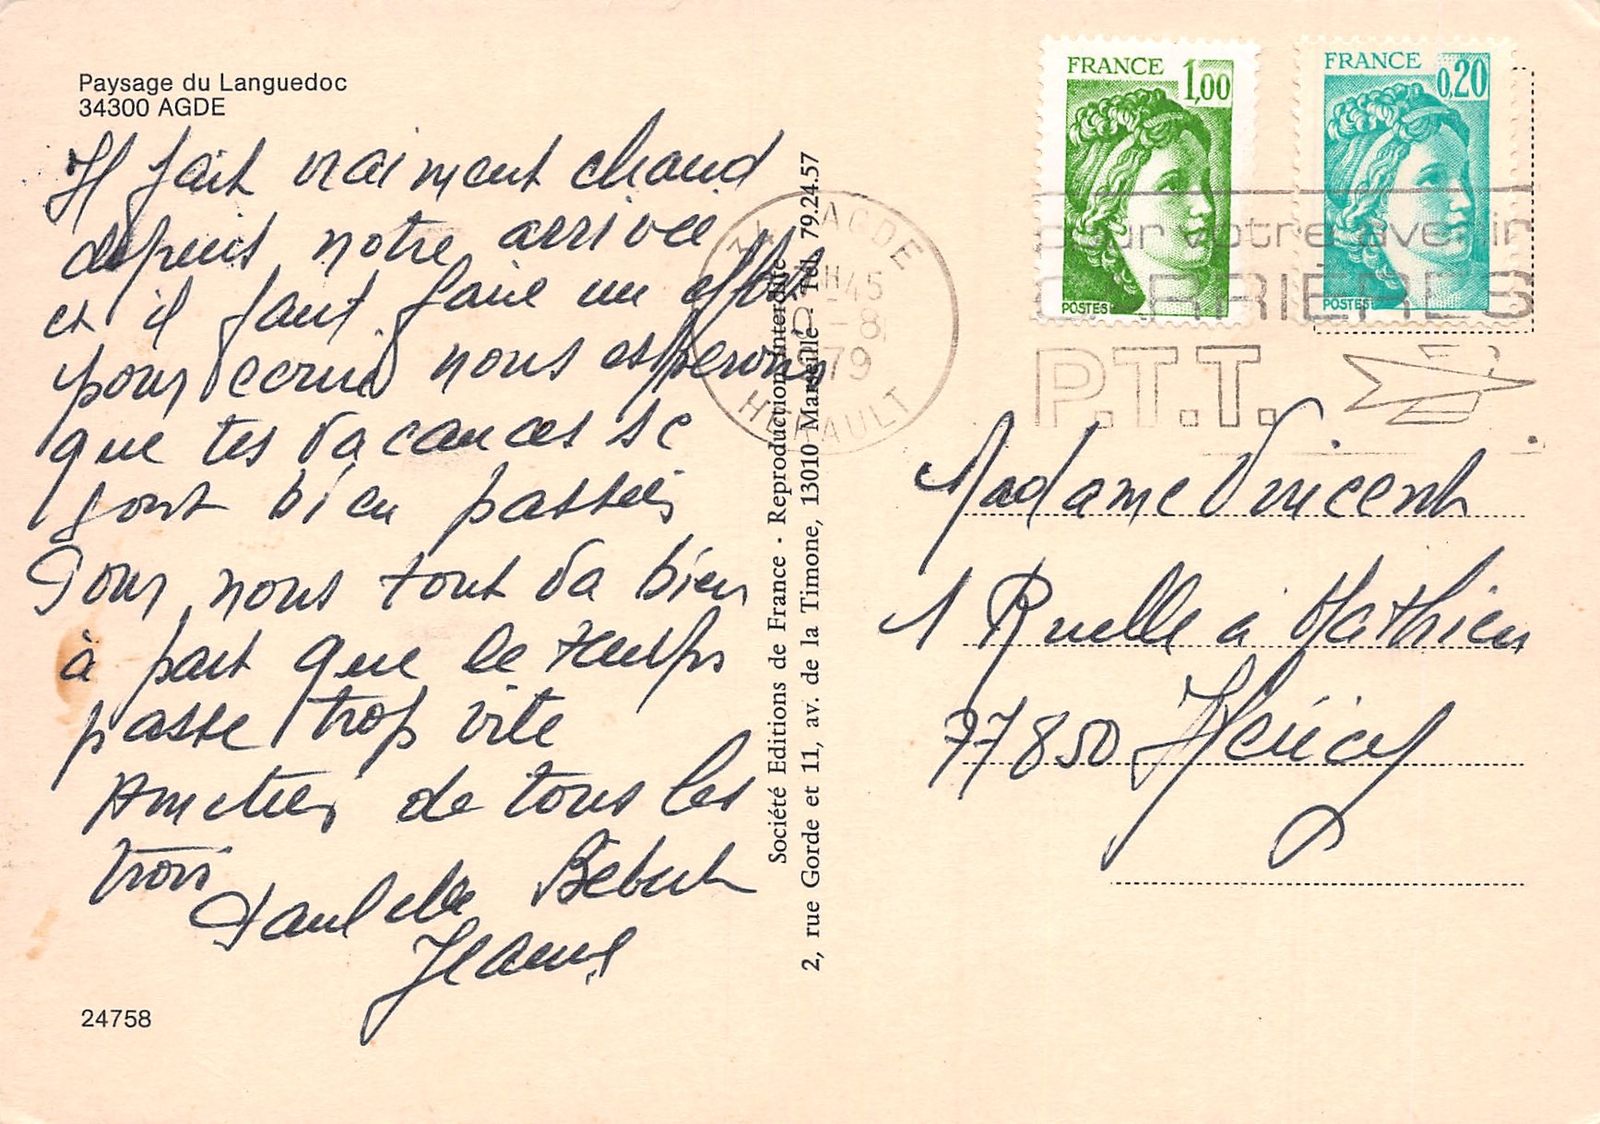 Paysage du Languedoc
34300 AGDE
Il fait vraiment chaud
depuis notre arrivée
et il faut faire un effort
pour écrire nous esperons
que tes vacances se
sont bien passées
Pour nous tout va bien
à part que le temps
passe trop vite
Amitiés de tous les
trois
Paulette Bébert
Jeanne
24758
Société Editions de France - Reproduction Interdite
2, rue Gorde et 11, av. de la Timone, 13010 Marseille - Tél. 79.24.57
AGDE
H45
-8
79
HERAULT
FRANCE 1,00
POSTES
FRANCE 0,20
POSTES
pour votre avenir
CARRIÈRES
P.T.T.
Madame Vincent
1 Ruelle à Mathieu
77850 Héricy